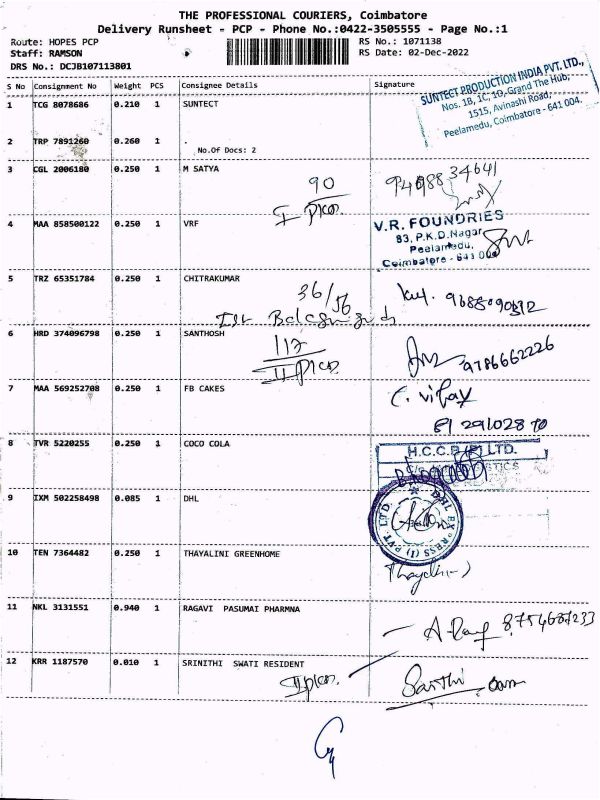 THE PROFESSIONAL COURIERS, Coimbatore
Delivery Runsheet - PCP - Phone No.:0422-3505555 - Page No.:1
Route: HOPES PCP
Staff: RAMSON
DRS No.: DCJB107113801
RS No.: 1071138
RS Date: 02-Dec-2022
S No Consignment No Weight PCS Consignee Details Signature
1 TCG 8078686 0.210 1 SUNTECT
SUNTECT PRODUCTION INDIA PVT. LTD.,
Nos. 1B, 1C, 1D, Grand The Hub,
1515, Avinashi Road,
Peelamedu, Coimbatore - 641 004.
2 TRP 7891260 0.260 1 .
No.Of Docs: 2
3 CGL 2006180 0.250 1 M SATYA
90
4 MAA 858500122 0.250 1 VRF
V.R. FOUNDRIES
83, P.K.D.Nagar
Peelamedu,
Coimbatore - 641 004
5 TRZ 65351784 0.250 1 CHITRAKUMAR
36/56
6 HRD 374096798 0.250 1 SANTHOSH
117
9786662226
7 MAA 569252708 0.250 1 FB CAKES
C. Vijay
8 TVR 5220255 0.250 1 COCO COLA
H.C.C.B (P) LTD.
9 IXM 502258498 0.085 1 DHL
DHL EXPRESS (I) PVT. LTD.
10 TEN 7364482 0.250 1 THAYALINI GREENHOME
Thayalini
11 NKL 3131551 0.940 1 RAGAVI PASUMAI PHARMNA
12 KRR 1187570 0.010 1 SRINITHI SWATI RESIDENT